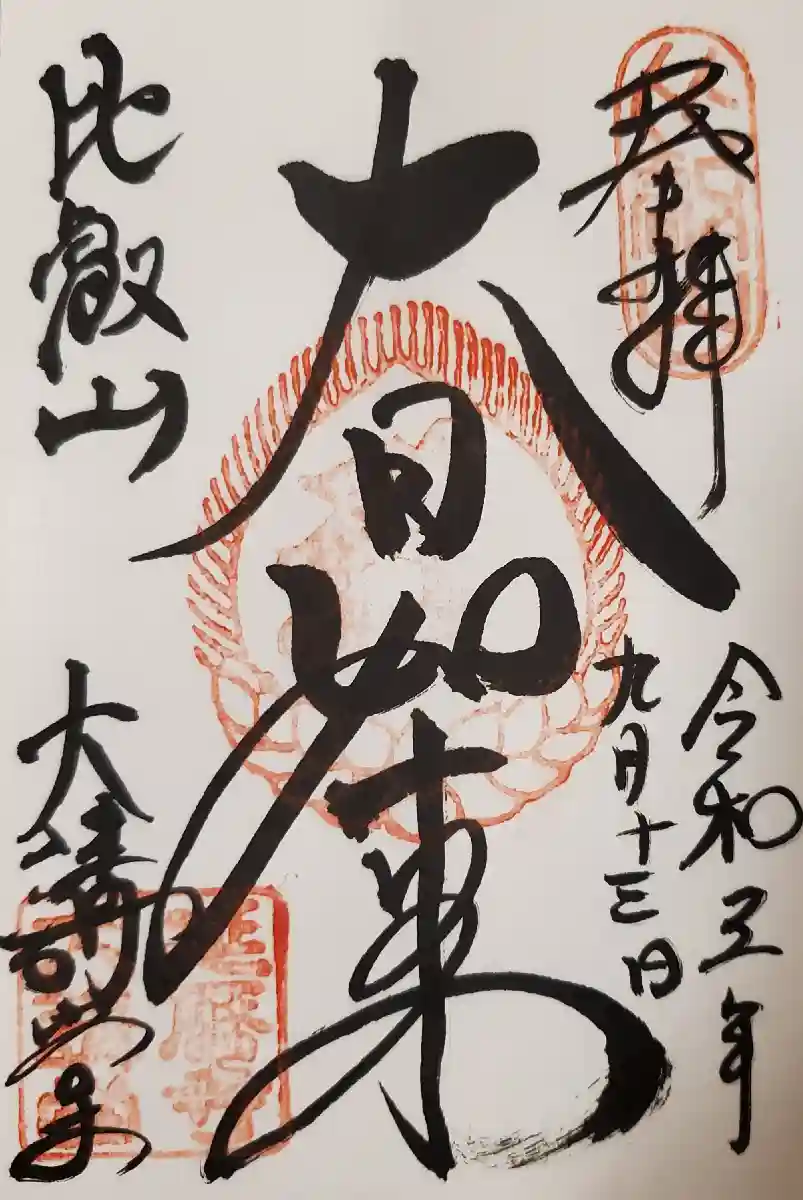 奉拝
令和五年
九月十三日
大日如来
比叡山
大講堂
延暦寺